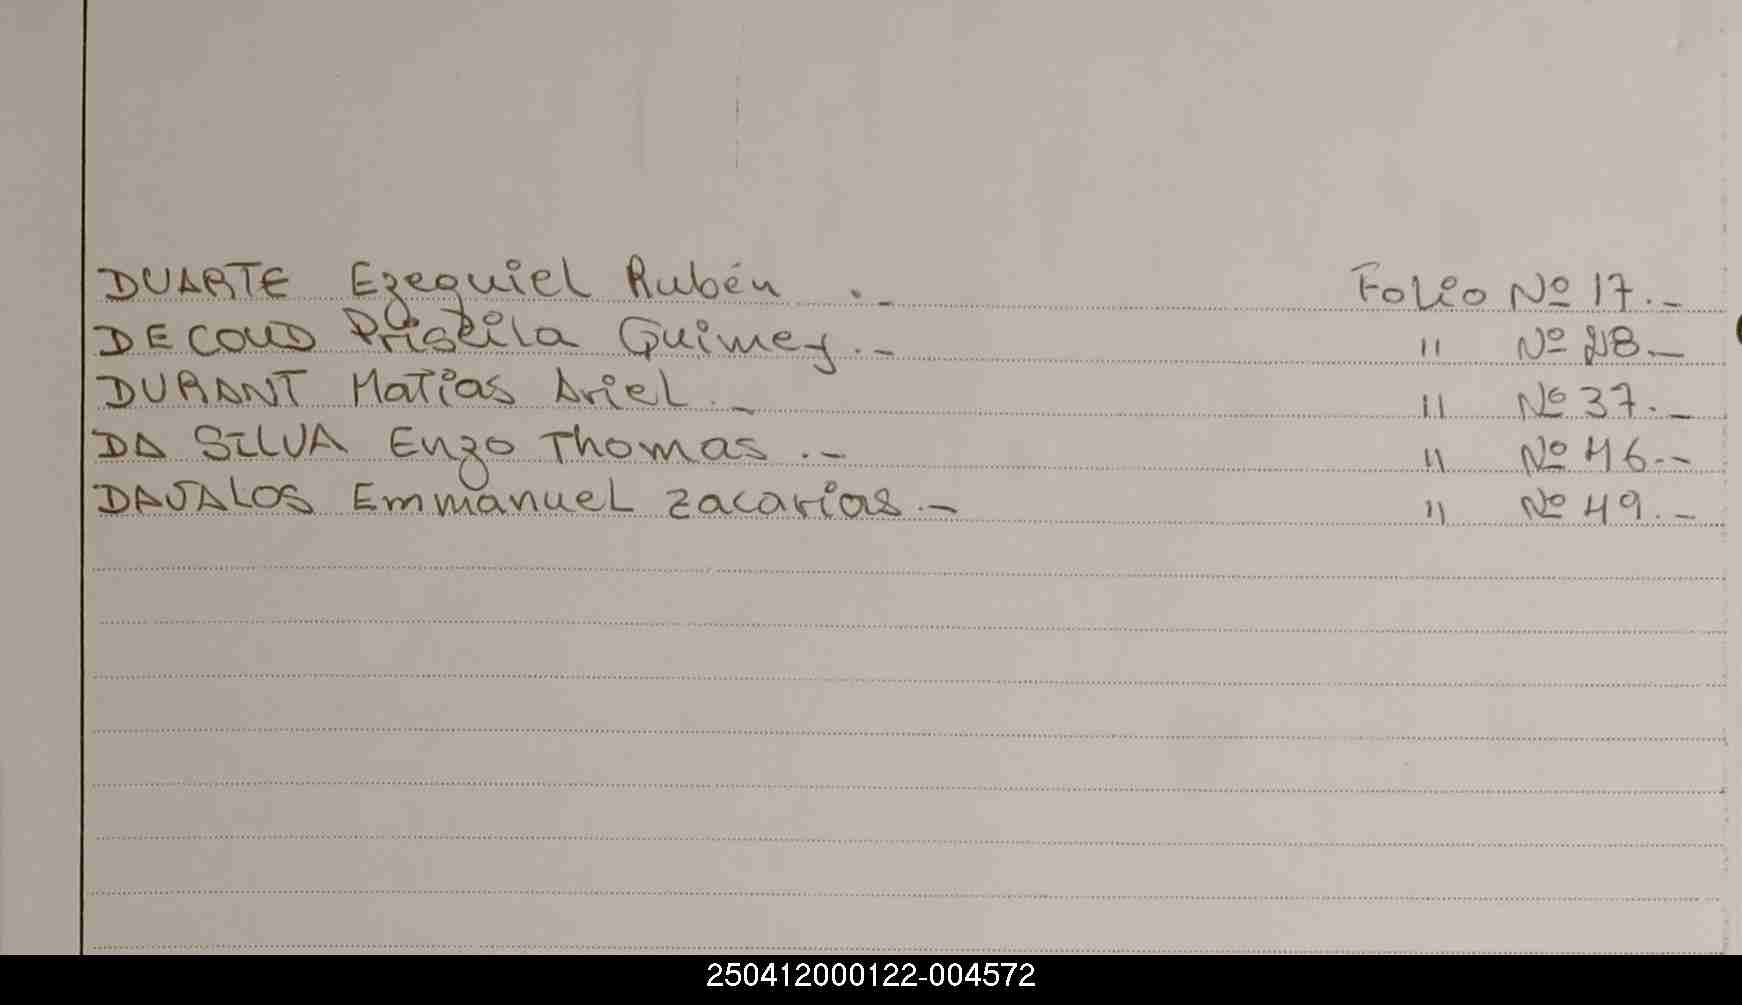 DUARTE Ezequiel Rubén .- Folio Nº 17.-
DECOUD Guimey.- " Nº 28-
DURANT Matías Ariel.- " Nº 37.-
DA SILVA Enzo Thomas.- " Nº 46.-
DAVALOS Emmanuel Zacarías.- " Nº 49.-
250412000122-004572